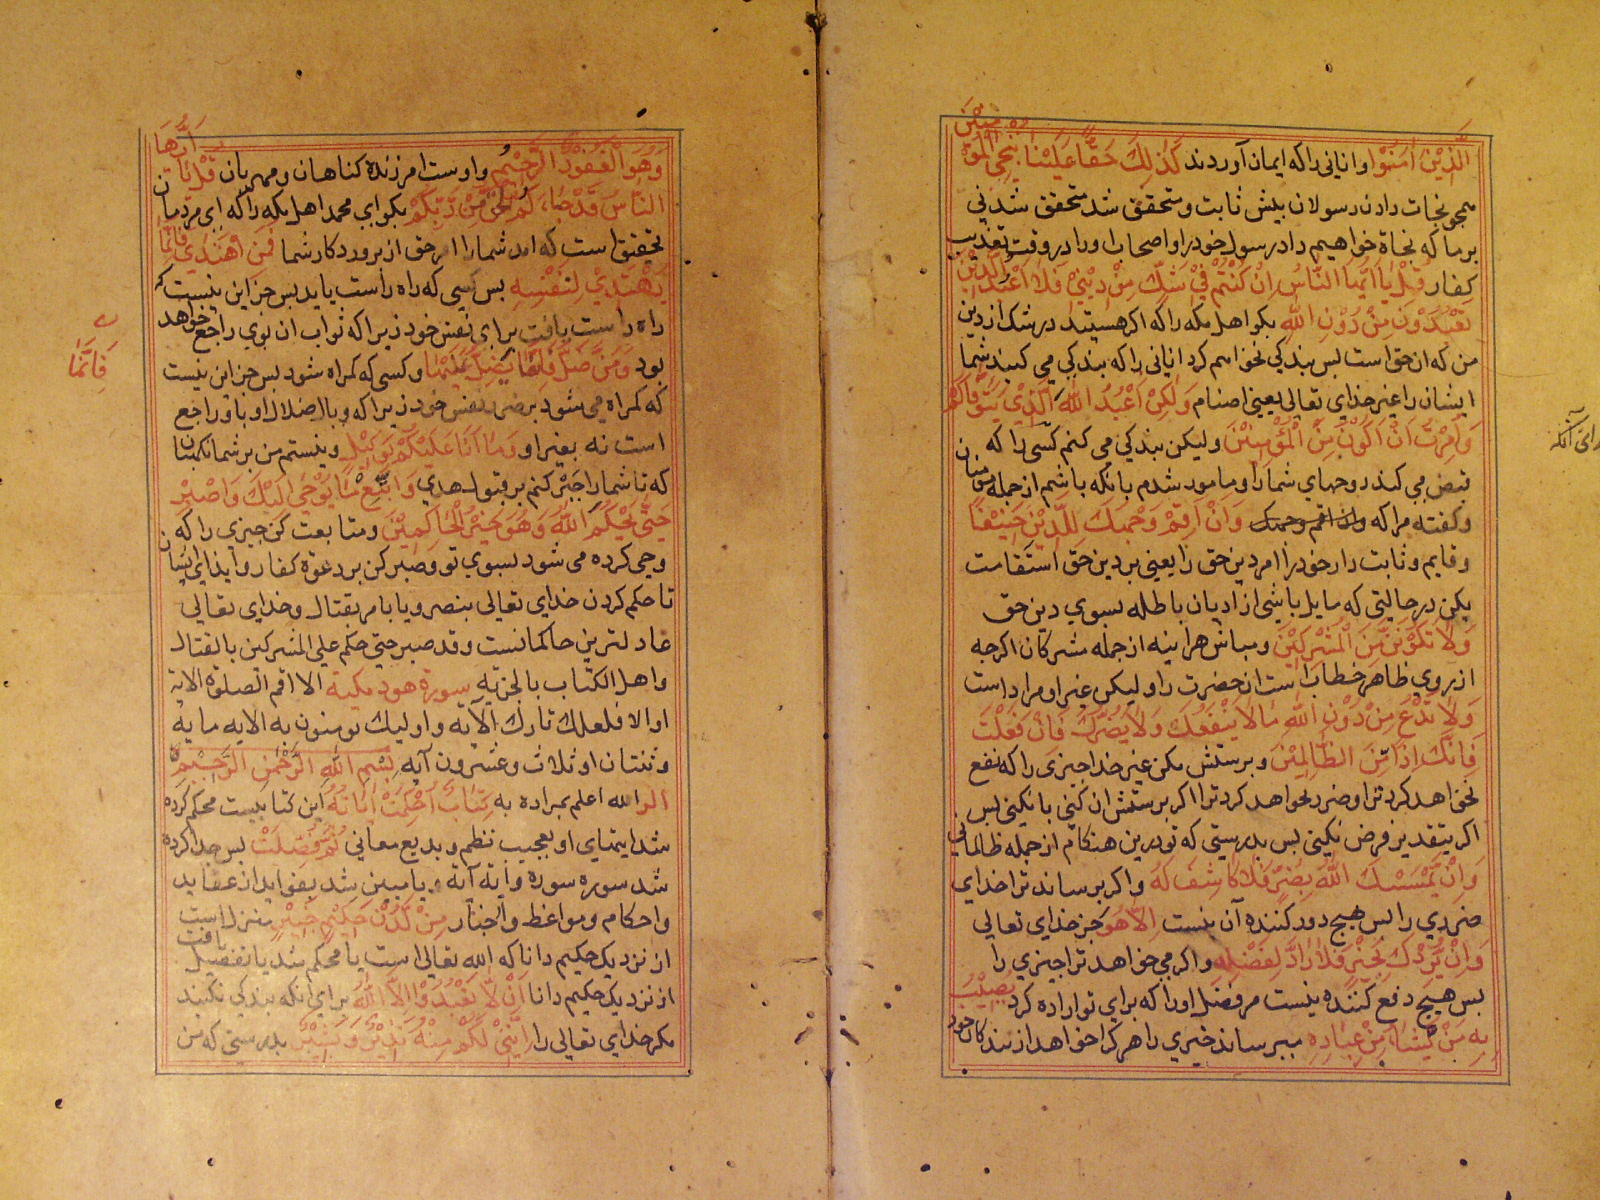 الَّذِيْنَ اٰمَنُوْا وانانی را که ایمان آوردند كَذٰلِكَ حَقًّا عَلَيْنَا نُنْجِی الْمُؤْمِنِيْنَ
همچو نجات دادن رسولان پیش ثابت و متحقق شد متحقق شدنی
بر ما که نجاة خواهیم داد رسول خود را و اصحاب او را در وقت تعذیب
کفار قُلْ يٰا اَيُّهَا النَّاسُ اِنْ كُنْتُمْ فِيْ شَكٍّ مِنْ دِيْنِيْ فَلَا اَعْبُدُ الَّذِيْنَ
تَعْبُدُوْنَ مِنْ دُوْنِ اللّٰهِ بکو اهل مکه را که اکر هستید در شک از دین
من که ان حق است بس بندکی نخواهم کرد انانی را که بندکی می کنید شما
ایشان را غیر خدای تعالی یعنی اصنام وَلٰكِنْ اَعْبُدُ اللّٰهَ الَّذِيْ يَتَوَفّٰاكُمْ
وَاُمِرْتُ اَنْ اَكُوْنَ مِنَ الْمُؤْمِنِيْنَ ولیکن بندکی می کنم کسی را که
قبض می کند روحهای شما را و مامور شدم بانکه باشم از جمله مؤمنان
و کفته مرا که وان اقم وجهک وَاَنْ اَقِمْ وَجْهَكَ لِلدِّيْنِ حَنِيْفًا
و قایم و ثابت دار خود را امر دین حق را یعنی بر دین حق استقامت
بکن در حالتی که مایل باشی از ادیان باطله بسوی دین حق
وَلَا تَكُوْنَنَّ مِنَ الْمُشْرِكِيْنَ و مباش هر اینه از جمله مشرکان اکرجه
از روی ظاهر خطاب است ان حضرت را و لیکن غیر او مراد است
وَلَا تَدْعُ مِنْ دُوْنِ اللّٰهِ مٰا لَا يَنْفَعُكَ وَلَا يَضُرُّكَ فَاِنْ فَعَلْتَ
فَاِنَّكَ اِذًا مِّنَ الظَّالِمِيْنَ و پرستش مکن غیر خدا چیزی را که نفع
نخواهد کرد ترا و ضرر نخواهد کرد ترا اکر پرستش ان کنی یا نکنی بس
اکر بتقدیر فرض نکینی بس بدرستی که تو درین هنکام از جمله ظالمانی
وَاِنْ يَمْسَسْكَ اللّٰهُ بِضُرٍّ فَلَا كَاشِفَ لَهُ و اکر برساند ترا خدای
ضرری را بس هیچ دور کننده آن نیست اِلَّا هُوَ جز خدای تعالی
وَاِنْ يُّرِدْكَ بِخَيْرٍ فَلَا رٰادَّ لِفَضْلِهٖ و اکر می خواهد ترا چیزی را
بس هیچ دفع کننده نیست مر فضل او را که برای تو اراده کرد يُصِيْبُ
بِهٖ مَنْ يَّشَاءُ مِنْ عِبَادِهٖ میرساند خیری را هر کرا خواهد از بندکان خود
رای آنکه
وَهُوَ الْغَفُوْرُ الرَّحِيْمُ و اوست امرزنده کناهان و مهربان قُلْ يٰا اَيُّهَا
النَّاسُ قَدْ جٰاءَكُمُ الْحَقُّ مِنْ رَّبِّكُمْ بکو ای محمد اهل مکه را که ای مردمان
تحقیق است که امد شما را امر حق از پرورد کار شما فَمَنِ اهْتَدٰي فَاِنَّمَا
يَهْتَدِيْ لِنَفْسِهٖ بس کسی که راه راست یابد بس جز این نیست که
راه راست یافت برای نفس خود زیرا که ثواب ان بوی راجع خواهد
بود وَمَنْ ضَلَّ فَاِنَّمَا يَضِلُّ عَلَيْهَا و کسی که کمراه شود بس جز این نیست
فَاِنَّمَا
که کمراه می شود بر ضرر نفس خود زیرا که وبال اضلال او باو راجع
است نه بغیر او وَمٰا اَنَا عَلَيْكُمْ بِوَكِيْلٍ و نیستم من بر شما نکهبان
که تا شما را جبر کنم بر قبول هدی وَاتَّبِعْ مٰا يُوْحٰي اِلَيْكَ وَاصْبِرْ
حَتّٰي يَحْكُمَ اللّٰهُ وَهُوَ خَيْرُ الْحٰاكِمِيْنَ و متابعت کن چیزی را که
وحی کرده می شود بسوی تو و صبر کن بر دعوة کفار و ایذای شان
تا حکم کردن خدای تعالی بنصر و یا بامر بقتال و خدای تعالی
عادلترین حاکمانست و قد صبر حتی حکم علی المشرکین بالقتال
و اهل الکتاب بالجزیه سورة هود مکیة الا اقم الصلوة الایه
او الا فلعلک تارک الآیة و اولیک یومنون به الایه مایه
و ثنتان او ثلاث و عشرون آیه بِسْمِ اللّٰهِ الرَّحْمٰنِ الرَّحِيْمِ
الٓرٰ الله اعلم بمراده به كِتَابٌ اُحْكِمَتْ اٰيَاتُهُ این کتابیست محکم کرده
شد ایتهای او بعجیب نظم و بدیع معانی ثُمَّ فُصِّلَتْ بس جدا کرده
شد سوره سورة و آیة آیة و یا مبین شد بفواید از عقاید
و احکام و مواعظ و اخبار مِنْ لَّدُنْ حَكِيْمٍ خَبِيْرٍ منزل است
از نزدیک حکیم دانا که الله تعالی است یا محکم شد یا تفصیل یافت
از نزدیک حکیم دانا اَنْ لَّا تَعْبُدُوْا اِلَّا اللّٰهَ برای انکه بندکی نکنید
مکر خدای تعالی را اِنَّنِيْ لَكُمْ مِنْهُ نَذِيْرٌ وَّبَشِيْرٌ بدرستی که من